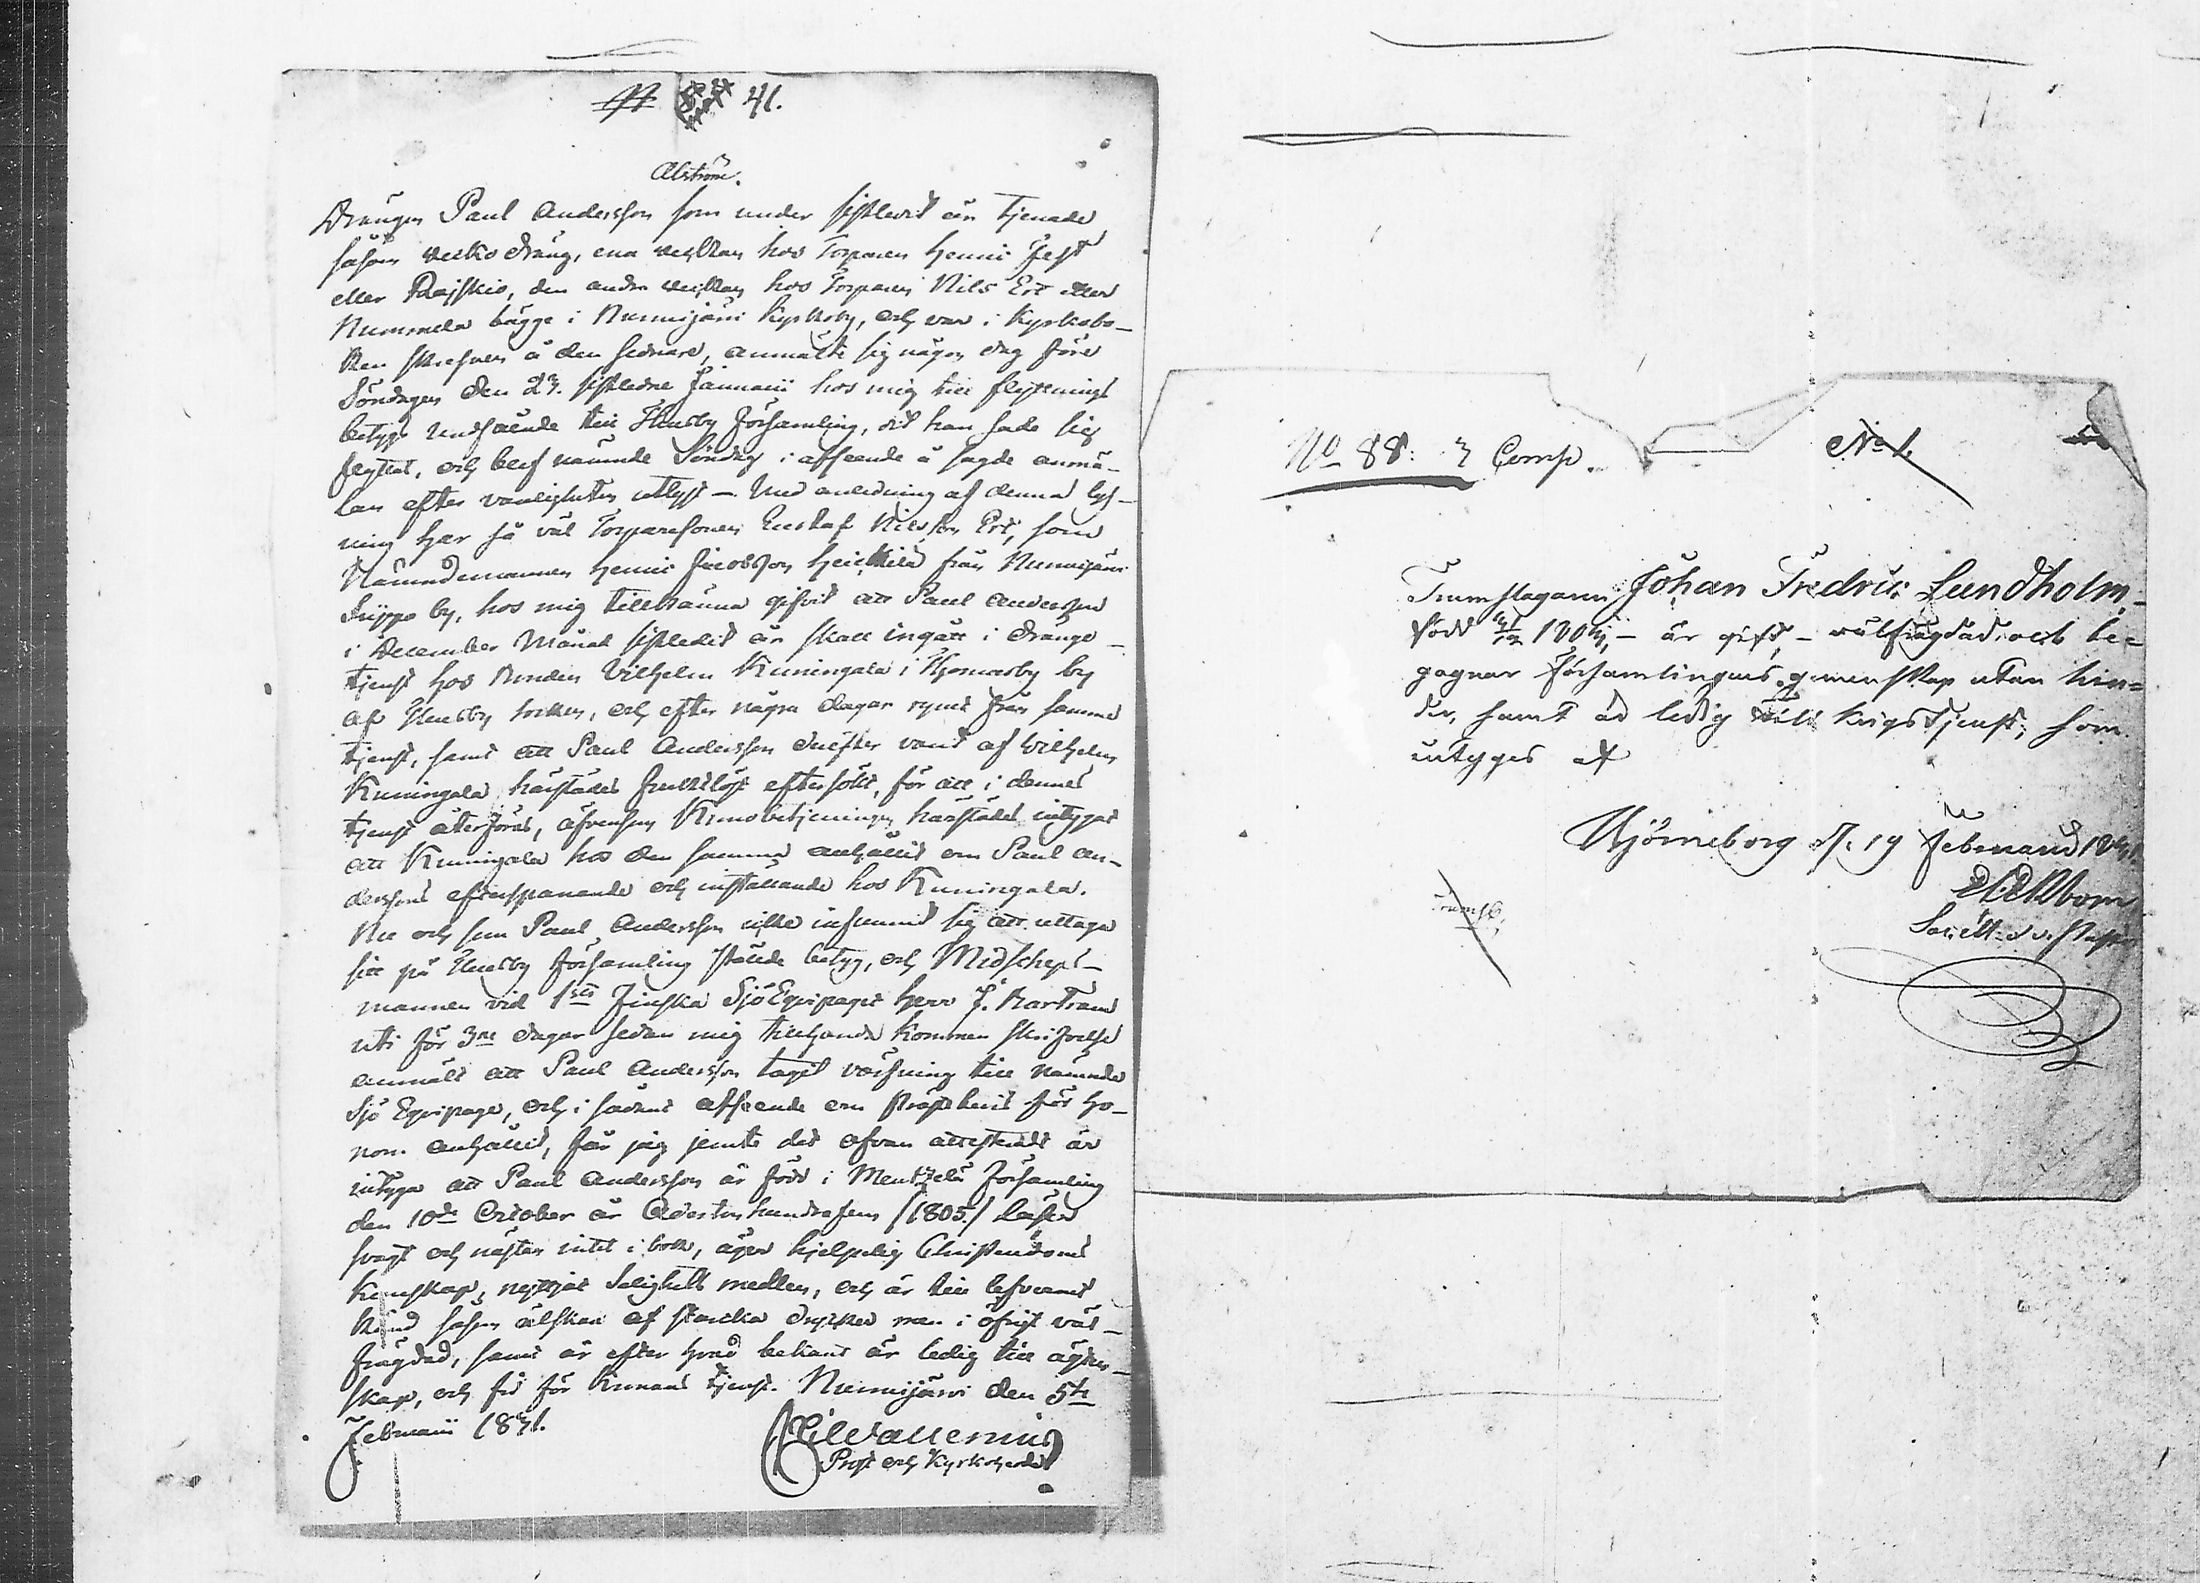 41.
Alström.
Drängen Paul Andersson som under sistledit år tjenade
såsom vecko dräng, ena veckan hos Torparen Henric Jest
eller Rajskio, den andra veckan hos Torparen Nils Ert eller
Nummela bägge i Nurmijärvi Kyrkoby, och var i Kyrkobo-
ken skrefven å den sednare, anmälte sig någon dag före
Söndagen den 23. sistledne Januarii hos mig till flyttnings
betygs undfående till Thusby Församling, dit han sade sig
flyttat, och blef nämnde Söndag i afseende å sagde anmä-
lan efter vanligheten utlyst – Med anledning af denna lys-
ning har så väl Torparesonen Gustaf Nilsson Ert, som
Nämndemannen Henric Jacobsson Heickilä från Nurmijärvi
by, hos mig tillkänna gifvit att Paul Andersson
i December Månad sistledit år skall ingått i dränge-
tjenst hos Bonden Vilhelm Kuningala i by
af Thusby socken, och efter några dagar rymt från samma
tjenst, samt att Paul Andersson derefter varit af Wilhelm
Kuningala härstädes fruktlöst eftersökt, för att i dennes
tjenst återföras, äfvensom Kronobetjeningen härstädes intygat
att Kuningala hos den samma anhållit om Paul An-
derssons efterspanande och inställande hos Kuningala.
Nu och som Paul Andersson icke infunnit sig att uttaga
sitt på Thusby församling ställde betyg, och Midscheps-
mannen vid 1sta Finska Sjö Equipaget Herr J. Bartram
uti för 3ne dagar sedan mig tillhanda kommen skrifvelse
anmält att Paul Andersson tagit värfning till nämnde
Sjö Equipage, och i sådant afseende om Prästbevis för ho-
nom anhållit, får jag jemte det ofvan attesteradt är
intyga att Paul Andersson är född i Mentzelä Församling
den 10de October år Adertonhundrafem /1805./ läser
svagt och nästan intet i bok, äger hjelpelig Christendoms
Kunskap, nyttjat Salighets medlen, och är till lefvernet
känd såsom älskare af starcka drycker men i öfrigt väl-
frägdad, samt är efter hvad bekant är ledig till ägten-
skap, och fri för Kronans tjenst. Nurmijärvi den 5te
Februarii 1831.
Wallenius
Prost och Kyrkoherde
No 88. 3 Comp.
No 1.
Trumslagaren Johan Fredric Lundholm,
född är gift, – välfrägdad och be-
gagnar församlingens gemenskap utan hin-
der, samt är ledig till krigstjenst; som
intygas af
Björneborg d. 19 Februarii 1831.